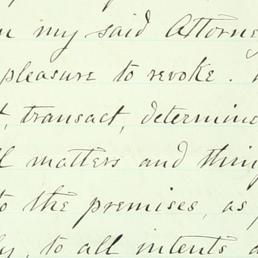 my said Attorney
pleasure to revoke.
transact, determine
matters and thing
to the premises, as
to all intents